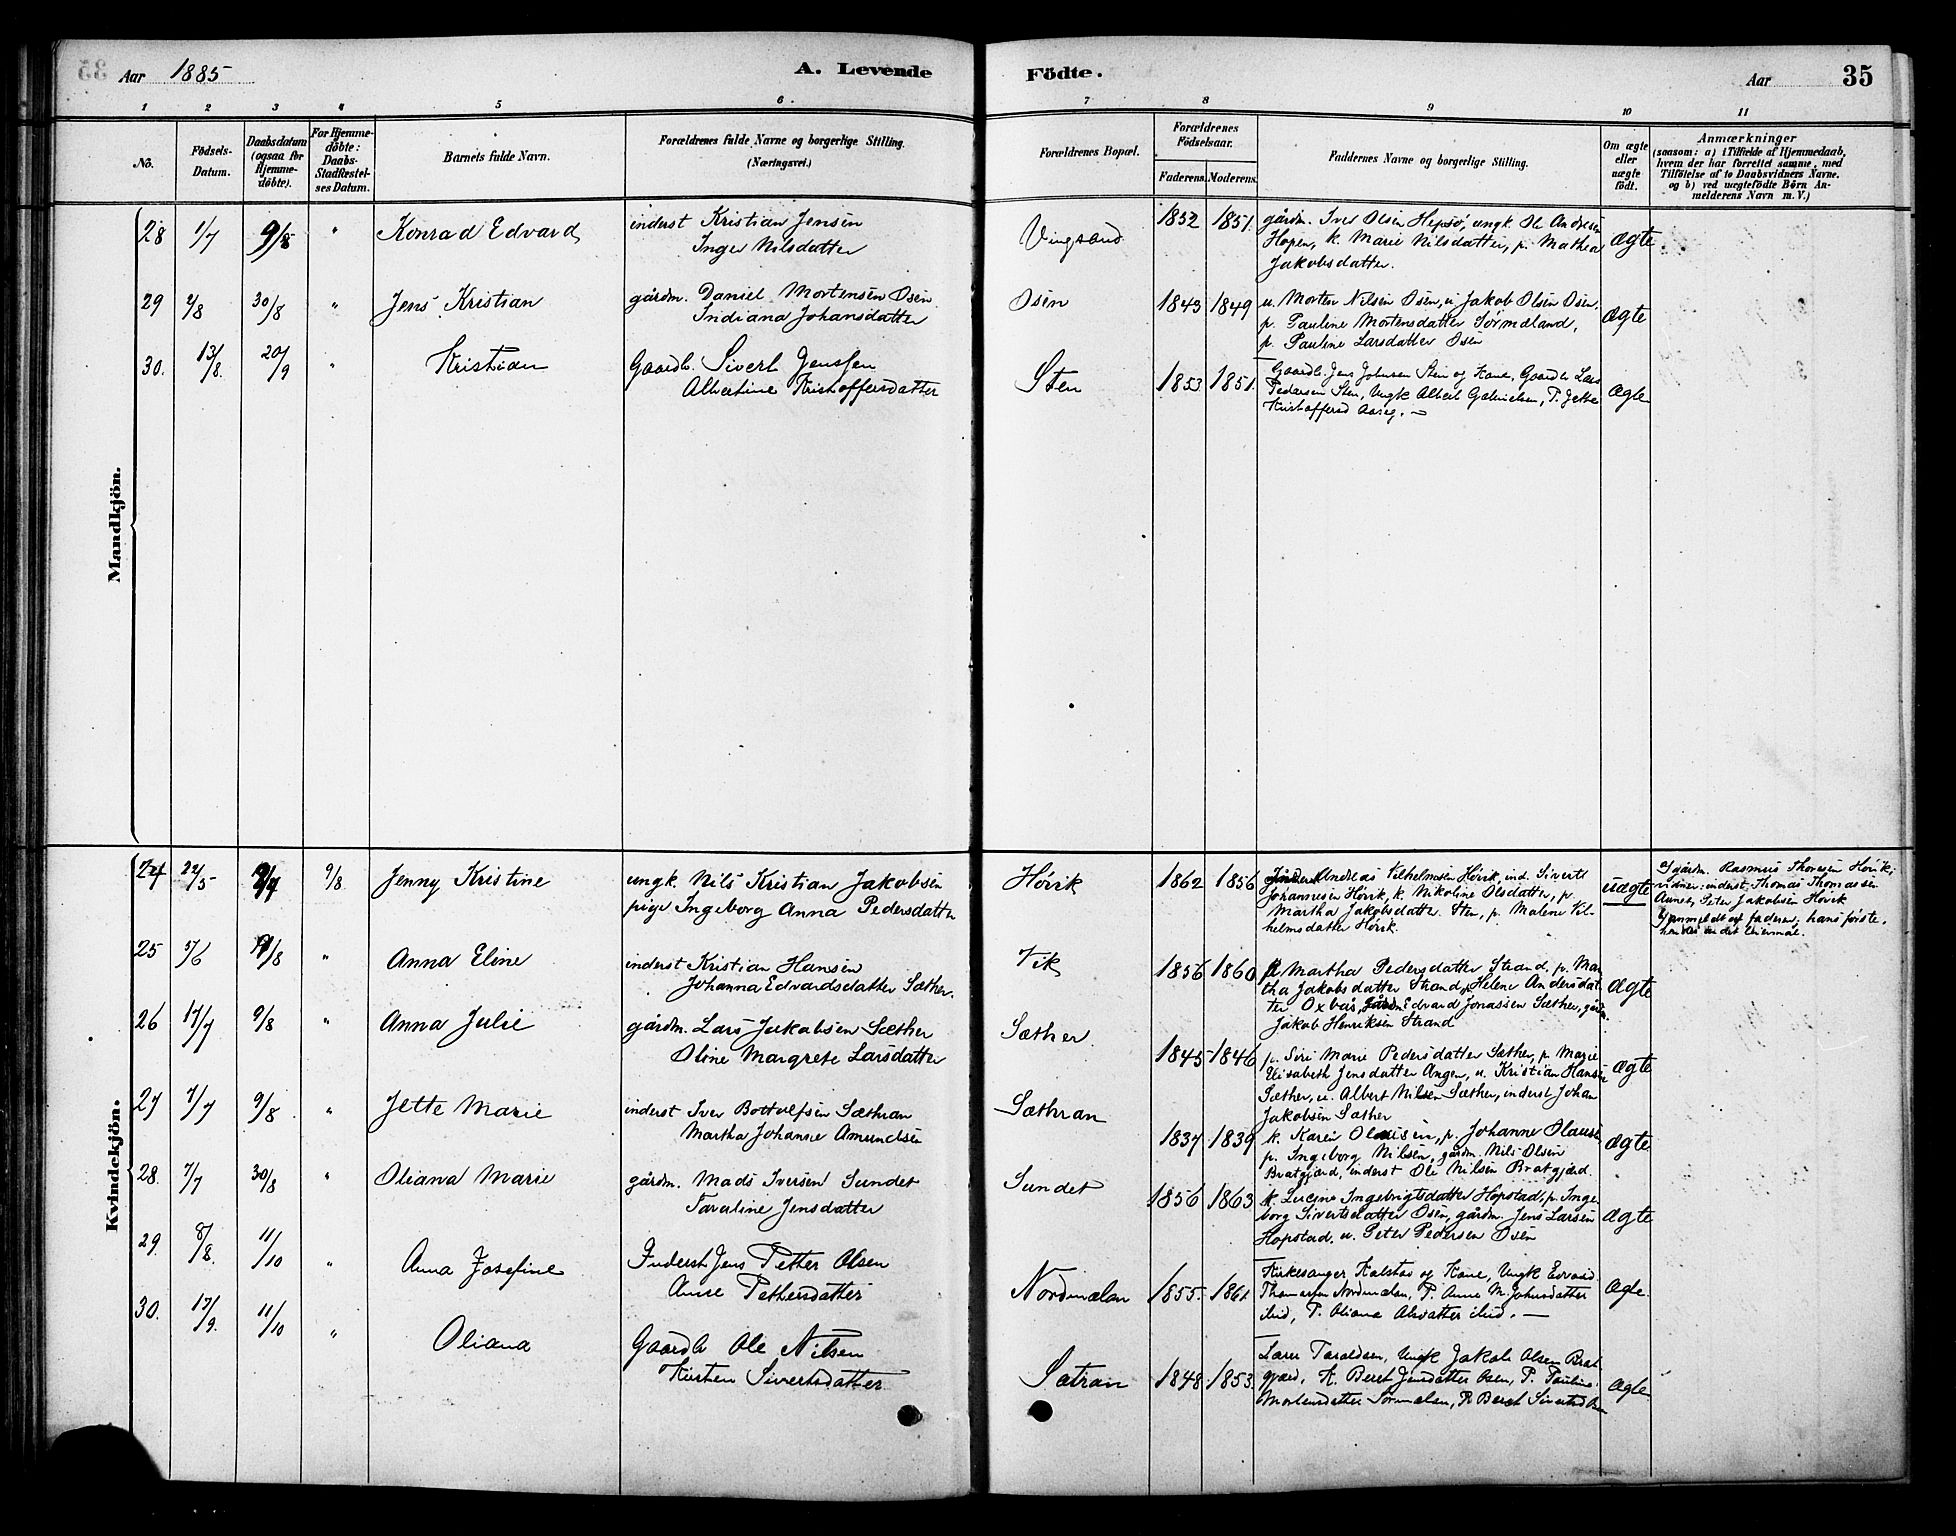 Aar 1885
A. Levende Födte.
Aar 35
1 2 3 4 5 6 7 8 9 10 11
No.
Födsels-Datum.
Daabsdatum (ogsaa for Hjemmedöbte).
For Hjemmedöbte: Daabs-Stadfæstelses Datum.
Barnets fulde Navn.
Forældrenes fulde Navne og borgerlige Stilling. (Næringsvei.)
Forældrenes Bopæl.
Forældrenes Födselsaar.
Faderens. Moderens.
Faddernes Navne og borgerlige Stilling.
Om ægte eller uægte födt.
Anmærkninger
(saasom: a) i Tilfælde af Hjemmedaab,
hvem der har forrettet samme, med
Tilföielse af to Daabsvidners Navne.
og b) ved uægtefödte Börn An-
melderens Navn m. V.)
Mandkjön.
28 1/7 9/8 " Konrad Edvard
inderst Kristian Jensen
Inger Nilsdatter
Vingsand 1852 1851.
gårdm. Iver Olsen Hepsö, ungk. Ole Andresen
Hopen, k. Marie Nilsdatter, p. Mathea
Jakobsdatter.
ægte
29 2/8 30/8 " Jens Kristian
gårdm. Daniel Mortensen Osen
Indiana Johansdatter
Osen 1843 1849
u. Morten Nilsen Osen, u. Jakob Olsen Osen
p. Pauline Mortensdatter Sørmæland,
p. Pauline Larsdatter Osen
ægte
30. 13/8. 20/9 " Kristian
Gaardb. Sivert Jenssen
Albertine Kristoffersdatter
Sten 1853 1851.
Gaardb. Jens Johnsen Sten og Kone, Gaardb Lars
Pedersen Sten, Ungk Albert Gabrielsen, P. Jette
Kristoffersd
ægte
Kvindekjön.
24 22/5 9/8 Jenny Kristine
ungk. Nils Kristian Jakobsen
pige Ingeborg Anna Pedersdatter
Høvik 1862 1856
Andreas Vilhelmsen Høvik, ind. Sivert
Johannesen Høvik, k. Nikoline Olsdatter, p.
Martha Jakobsdatter Sten, p. Malene Vil-
helmsdatter Høvik.
uægte
gårdm. Rasmus Thoresen Høvik;
vidner: inderst Thomas Thomassen
Aune, Peter Jakobsen Høvik
anmeldt af faderen; hans første,
hendes andet leiermål.
25 3/6 9/8 " Anna Eline
inderst Kristian Hansen
Johanna Edvardsdatter Sæther.
Vik 1856 1860
Martha Pedersdatter Strand, p. Mar
tha Jakobsdatter Strand, Helene Andersdat-
ter Oxbås, Edvard Jonassen Sæther, gårdm.
Jakob Henriksen Strand
ægte
26 17/7 9/8 " Anna Julie
gårdm. Lars Jakobsen Sæther
Oline Margrete Larsdatter
Sæther 1845 1846
p. Siri Marie Pedersdatter Sæther, p. Marie
Elisabeth Jensdatter Angen, u. Kristian Hansen
Sæther, u. Albert Nilsen Sæther, inderst Johan
Jakobsen Sæther
ægte
27 7/7 9/8 " Jette Marie
inderst Iver Bottolfsen Sæthran
Martha Johanne Amundsen
Sæthran 1837 1839
k. Karen Olsen, p. Johanne Olausen,
p. Ingeborg Nilsen, gårdm. Nils Olsen
Bratgjærd, inderst Ole Nilsen Bratgjærd.
ægte
28. 7/7 30/8 " Oliana Marie
gårdm. Mads Iversen Sundet
Taraline Jensdatter
Sundet 1856 1863
k. Lucine Ingebrigtsdatter Hopstad, p. Inge
borg Sivertsdatter Osen, gårdm. Jens Larsen
Hopstad, u. Peter Pedersen Osen
ægte
29. 8/8. 11/10 " Anna Josefine
Inderst Jens Petter Olsen
Anne Pettersdatter
Nordmælan 1855. 1861.
Kirkesanger Kalstad og Kone, Ungk Edvard
Thomassen Nordmælan, P. Anne M. Johnsdatter
ibid, P. Oliana Olsdatter ibid.
ægte.
30. 17/9. 11/10 " Oliana
Gaardb Ole Nilsen
Kirsten Sivertsdatter
Sætran 1848 1853.
Lærer Taraldsen, Ungk Jakob Olsen Brat
gjærd, K. Beret Jensdatter Osen, P. Pauline
Mortensdatter Sørmælan, P. Beret Sivertsd Osen
ægte